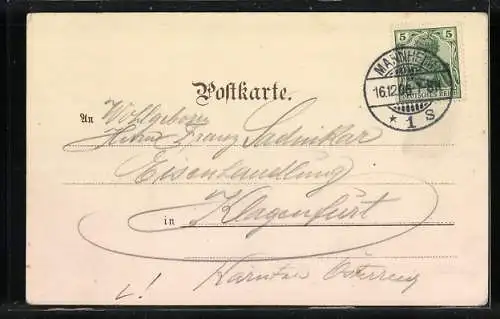 5 5
MANNHEIM
16.12.05
DEUTSCHES REICH
* 1 S
Postkarte.
An Wohlgeboren
Herrn Franz Sadnikar
Eisenhandlung
in Klagenfurt
Kärnten Österreich